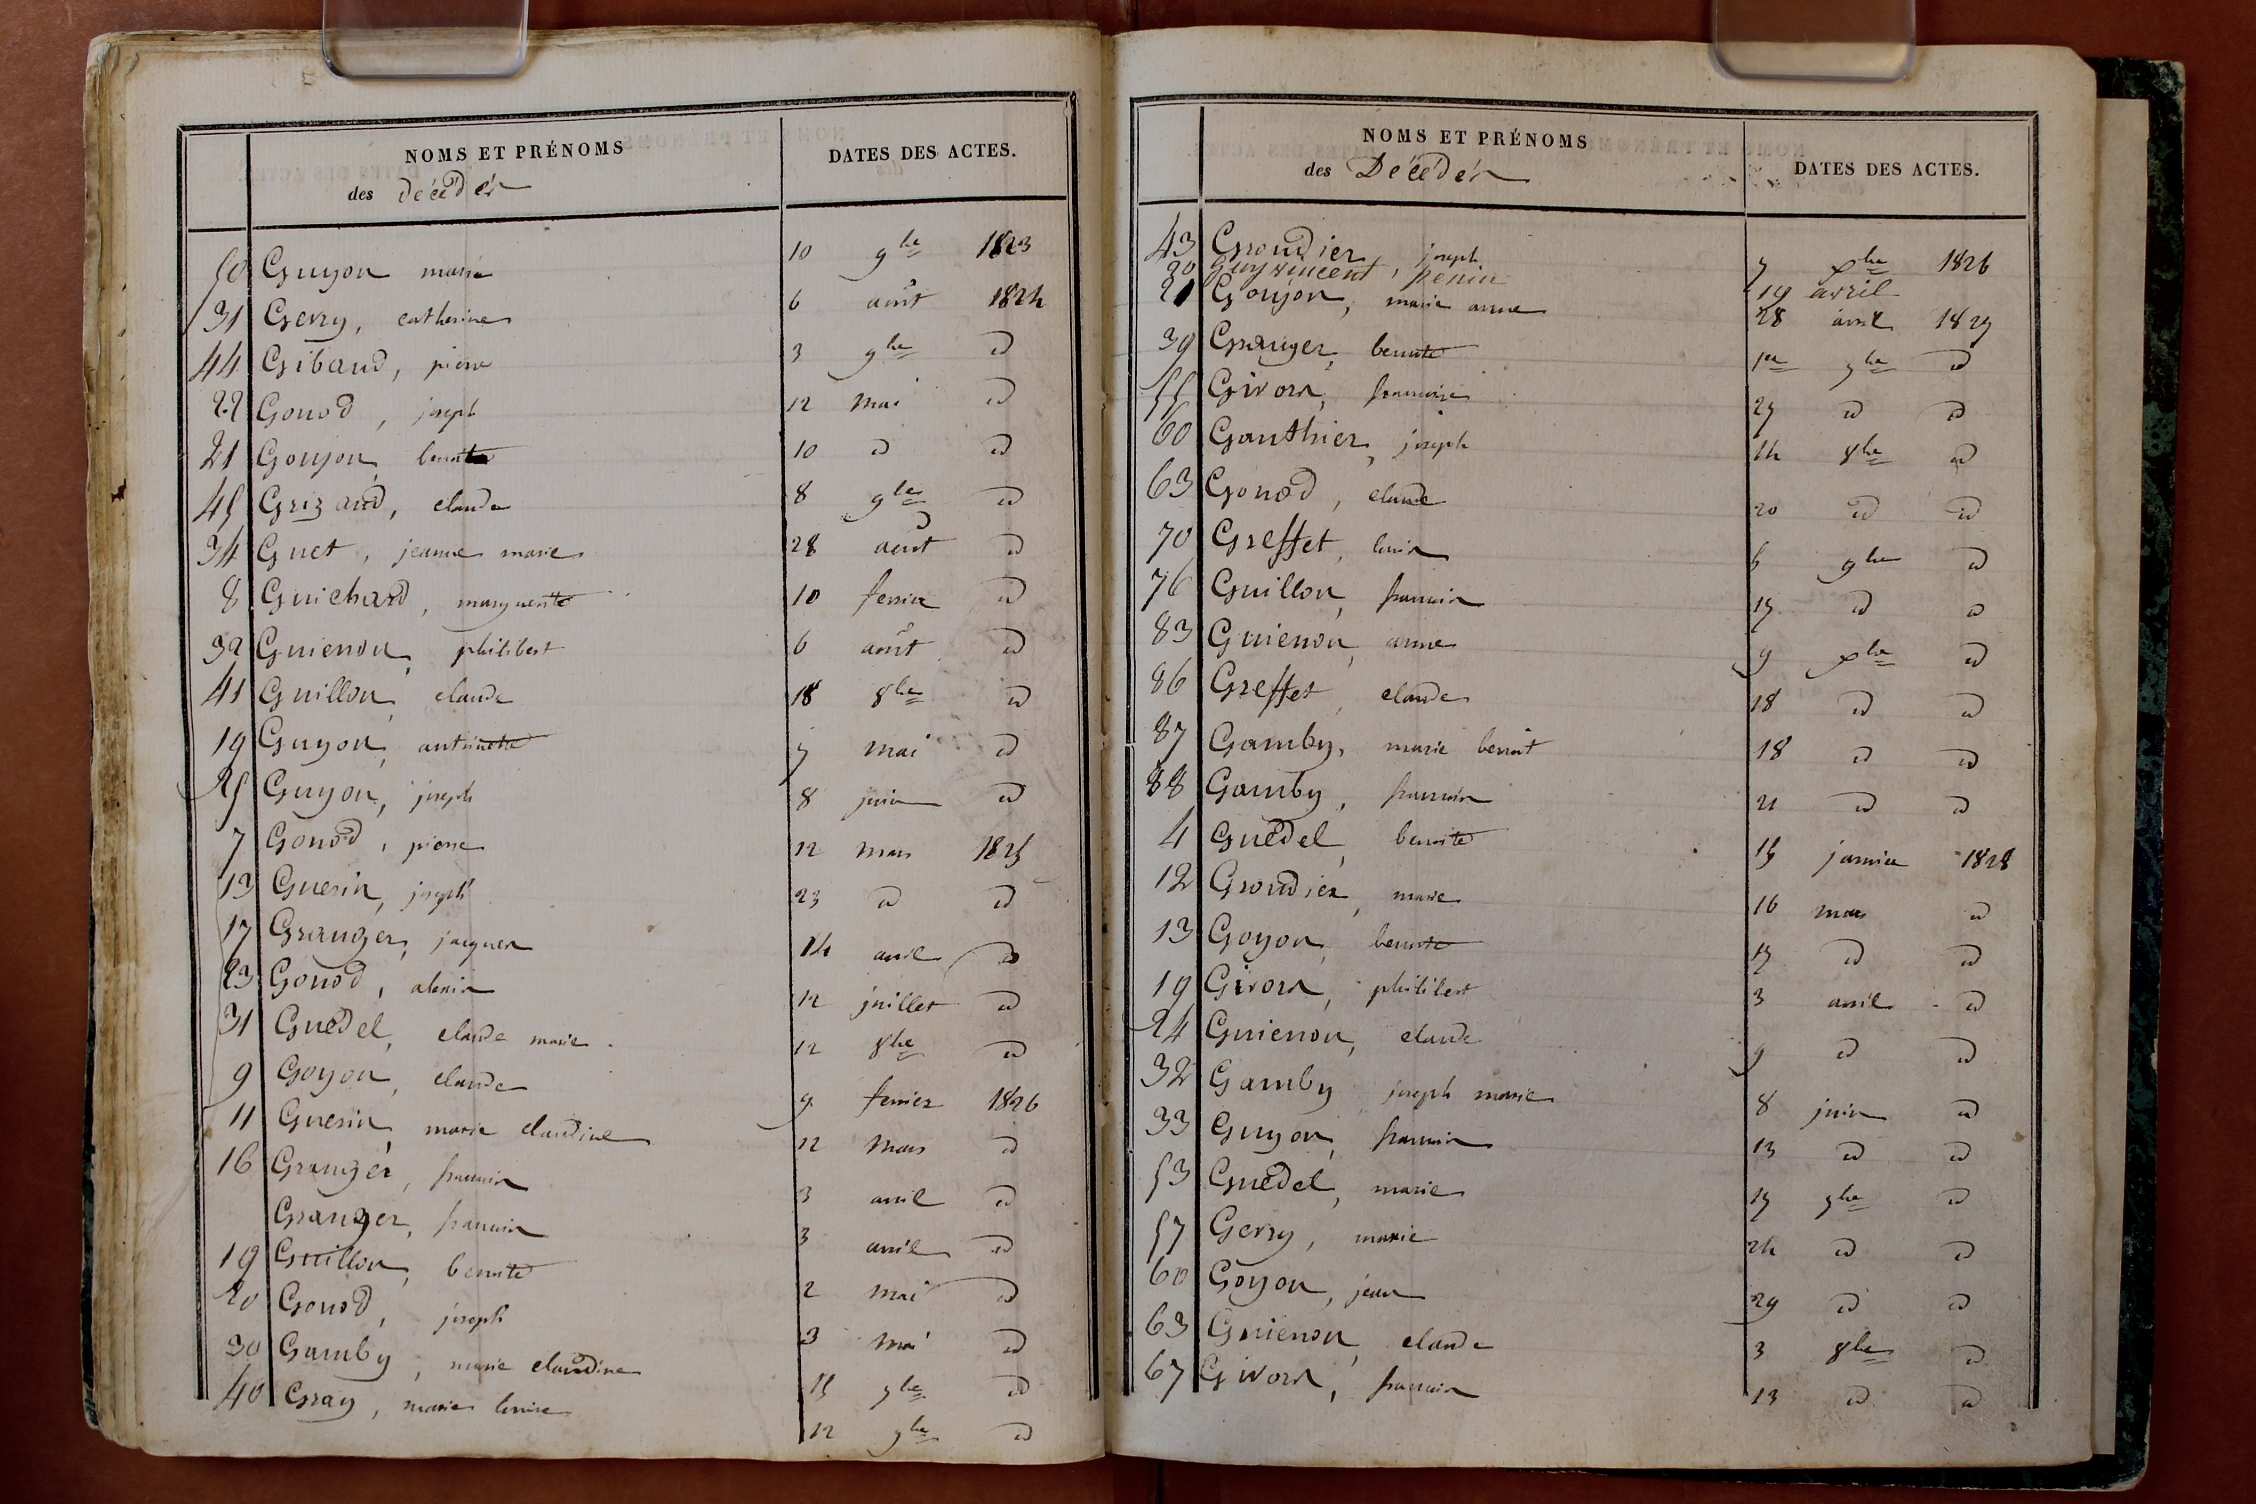 NOMS ET PRÉNOMS
des Décédés
DATES DES ACTES.
50 Guyon marie 10 9bre 1823
31 Gerry, catherine 6 août 1824
44 Gibaud, pierre 3 9bre id
22 Gonod, joseph 12 mai id
21 Goujon, benoite 10 id id
45 Grizaud, claude 8 9bre id
34 Guet, jeanne marie 28 août id
8 Guichard, marguerite 10 fevrier id
32 Guienon, philibert 6 août id
41 Guillon, claude 18 8bre id
19 Guyon, antoinette 7 mai id
25 Guyon, joseph 8 juin id
7 Gonod, pierre 12 mars 1825
13 Guerin, joseph 23 id id
17 Granger, jacques 14 avril id
23 Gonod, alexis 12 juillet id
31 Guédel, claude marie 12 8bre id
9 Goyon, claude 9 fevrier 1826
11 Guerin, marie claudine 12 mars id
16 Granger, francois 3 avril id
Granger, francois 3 avril id
19 Guillon, benoite 2 mai id
20 Gonod, joseph 3 mai id
30 Gamby, marie claudine 15 7bre id
40 Gray, marie louise 12 9bre id
NOMS ET PRÉNOMS
des Décédés
DATES DES ACTES.
43 Groudier, joseph 7 xbre 1826
20 Guy vincent, penin 19 avril
21 Goujon, marie anne 28 avril 1827
39 Granger, benoite 1er 7bre id
55 Givors, francoise 27 id id
60 Gauthier, joseph 14 8bre id
63 Gonod, claude 20 id id
70 Greffet, louis 6 9bre id
76 Guillon, francois 17 id id
83 Guienon, anne 9 xbre id
86 Greffet, claude 18 id id
87 Gamby, marie benoit 18 id id
88 Gamby, francois 21 id id
4 Guédel, benoite 15 janvier 1828
12 Groudier, marie 16 mars id
13 Goyon, benoite 17 id id
19 Givors, philibert 3 avril id
24 Guienon, claude 9 id id
32 Gamby joseph marie 8 juin id
33 Guyon, francois 13 id id
53 Guédel, marie 17 7bre id
57 Gerry, marie 24 id id
60 Goyon, jean 29 id id
63 Guienon, claude 3 8bre id
67 Givors, francois 13 id id